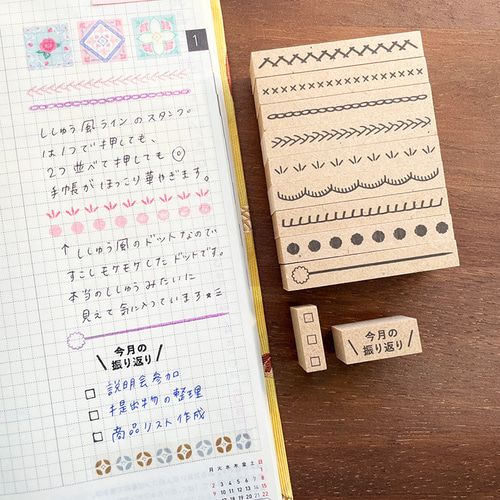 1
ししゅう風ラインのスタンプ。
は1つで押しても、
2つ並べて押しても◎
手帳がほっこり華やぎます。
↑ししゅう風のドットなので
すこしモケモケしたドットです。
本当のししゅうみたいに
見えて気に入っています
今月の
振り返り
□ 説明会参加
□ 提出物の整理
□ 商品リスト作成
月 火 水 木 金 土 日
1
2 3 4 5 6 7 8
9 10 11 12 13 14 15
今月の
振り返り